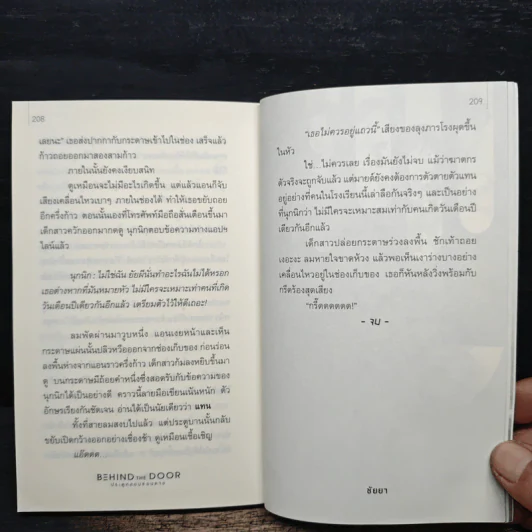 208
เลยนะ" เธอส่งปากกากับกระดาษเข้าไปในช่อง เสร็จแล้ว
ก้าวถอยออกมาสองสามก้าว
ภายในนั้นยังคงเงียบสนิท
ดูเหมือนจะไม่มีอะไรเกิดขึ้น แต่แล้วแอนก็จับ
เสียงเคลื่อนไหวเบาๆ ภายในช่องได้ ทำให้เธอขยับถอย
อีกครึ่งก้าว ตอนนั้นเองที่โทรศัพท์มือถือสั่นเตือนขึ้นมา
เด็กสาวควักออกมากดดู นุกนิกตอบข้อความทางแอปฯ
ไลน์แล้ว
นุกนิก : ไม่ใช่ฉัน ยัยผีนั่นทำอะไรฉันไม่ได้หรอก
เธอต่างหากที่มันหมายหัว ไม่มีใครจะเหมาะเท่าคนที่เกิด
วันเดือนปีเดียวกันอีกแล้ว เตรียมตัวไว้ให้ดีเถอะ!
ลมพัดผ่านมาวูบหนึ่ง แอนเงยหน้าและเห็น
กระดาษแผ่นนั้นปลิวหวือออกจากช่องเก็บของ ก่อนร่อน
ลงพื้นห่างจากแอนราวครึ่งก้าว เด็กสาวก้มลงหยิบขึ้นมา
ดู บนกระดาษมีถ้อยคำหนึ่งซึ่งสอดรับกับข้อความของ
นุกนิกได้เป็นอย่างดี คราวนี้ลายมือเขียนเน้นหนัก ตัว
อักษรเรียงกันชัดเจน อ่านได้เป็นนัยเดียวว่า แทน
ทั้งที่สายลมสงบไปแล้ว แต่ประตูบานนั้นกลับ
ขยับเปิดกว้างออกอย่างเชื่องช้า ดูเหมือนเชื้อเชิญ
แอ๊ดดด
BEHIND THE DOOR
209
"เธอไม่ควรอยู่แถวนี้" เสียงของลุงภารโรงผุดขึ้น
ในหัว
ใช่...ไม่ควรเลย เรื่องมันยังไม่จบ แม้ว่าฆาตกร
ตัวจริงจะถูกจับแล้ว แต่มายด์ยังคงต้องการตัวตายตัวแทน
อยู่อย่างที่คนในโรงเรียนนี้เล่าลือกันจริงๆ และเป็นอย่าง
ที่นุกนิกว่า ไม่มีใครจะเหมาะสมเท่ากับคนเกิดวันเดือนปี
เดียวกันอีกแล้ว
เด็กสาวปล่อยกระดาษร่วงลงพื้น ชักเท้าถอย
เงอะงะ ลมหายใจขาดห้วง แล้วพอเห็นเงาร่างบางอย่าง
เคลื่อนไหวอยู่ในช่องเก็บของ เธอก็หันหลังวิ่งพร้อมกับ
กรีดร้องสุดเสียง
"กรี๊ดดดดดด!"
- จบ -
ชัยยา